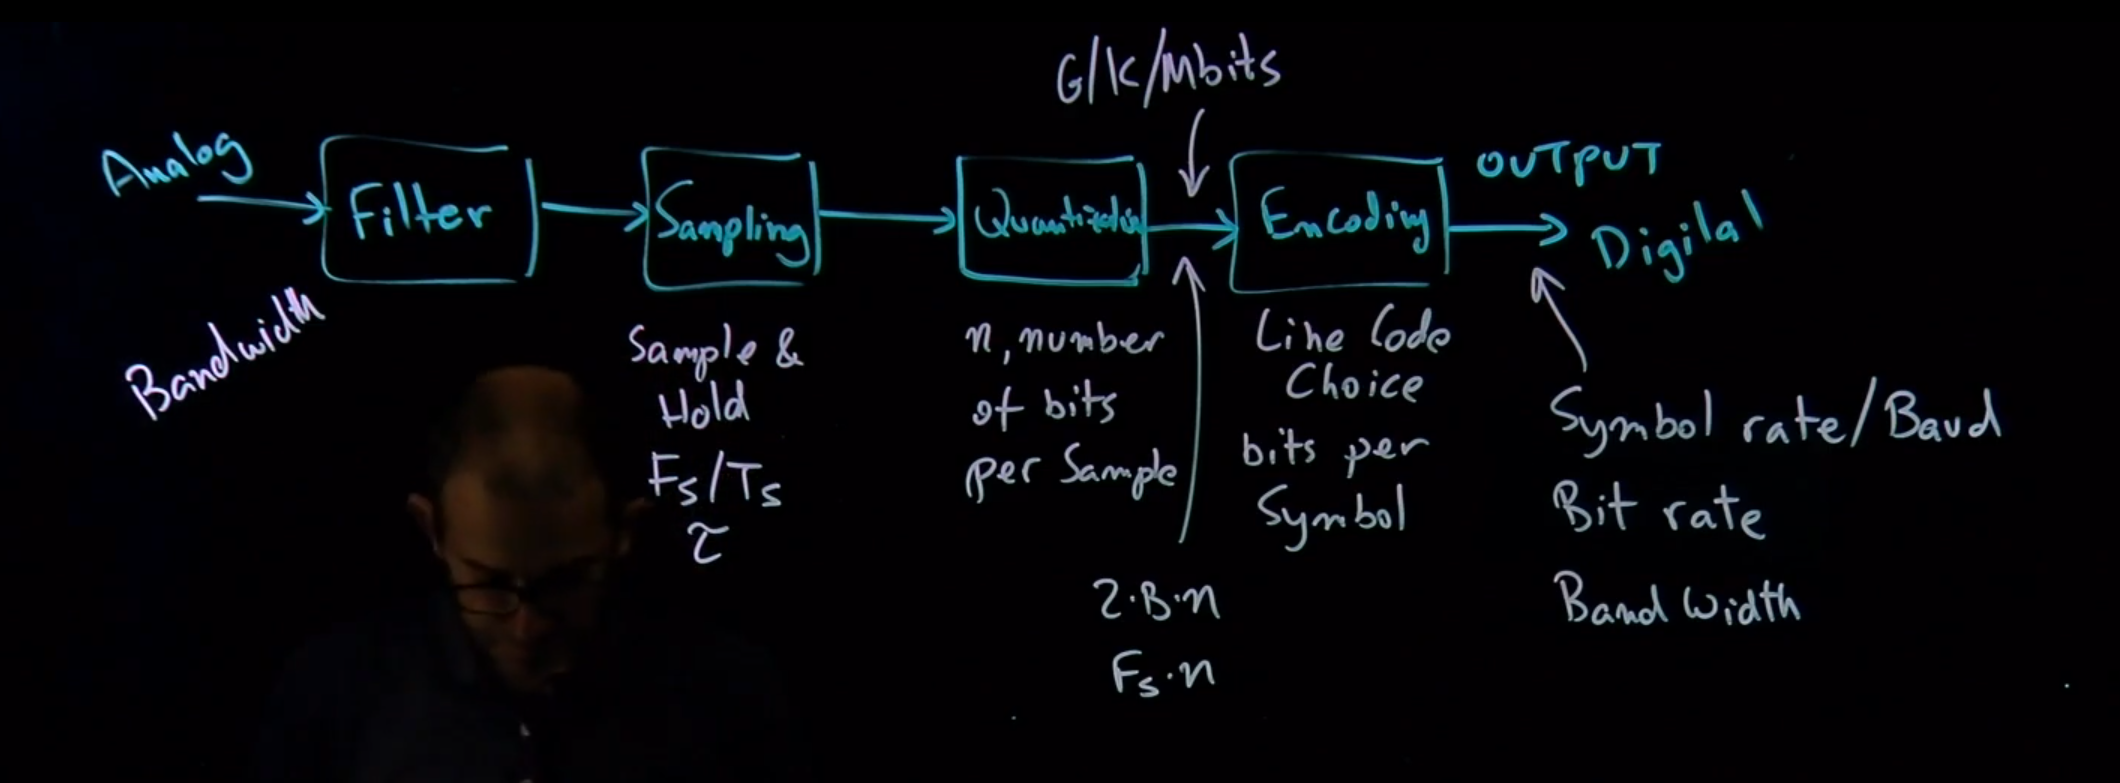 G/K/Mbits
Analog
Filter
Sampling
Quantization
Encoding
OUTPUT
Digital
Bandwidth
Sample &
Hold
Fs/Ts
τ
n, number
of bits
per Sample
2·B·n
Fs·n
Line Code
Choice
bits per
Symbol
Symbol rate/Baud
Bit rate
Band Width